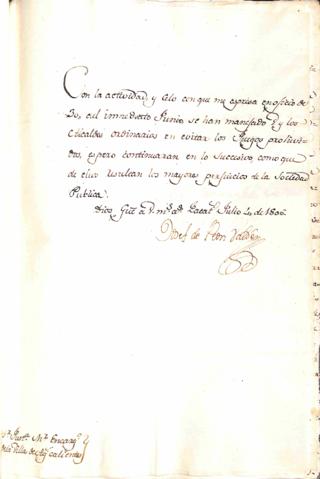 Con la actividad, y celo con que me expresa en oficio de
30, del inmediato Junio se han manejado V. y los
Alcaldes ordinarios en evitar los Juegos prohivi-
dos, espero continuaran en lo succesivo, como que
de ellos resultan los mayores perjuicios de la Sociedad
Publica.
Dios Gue a V. m.s a.s Zacat.s Julio 4 de 1806
de Peon Valdes
Encarg.
de la Villa de Ag.s calientes